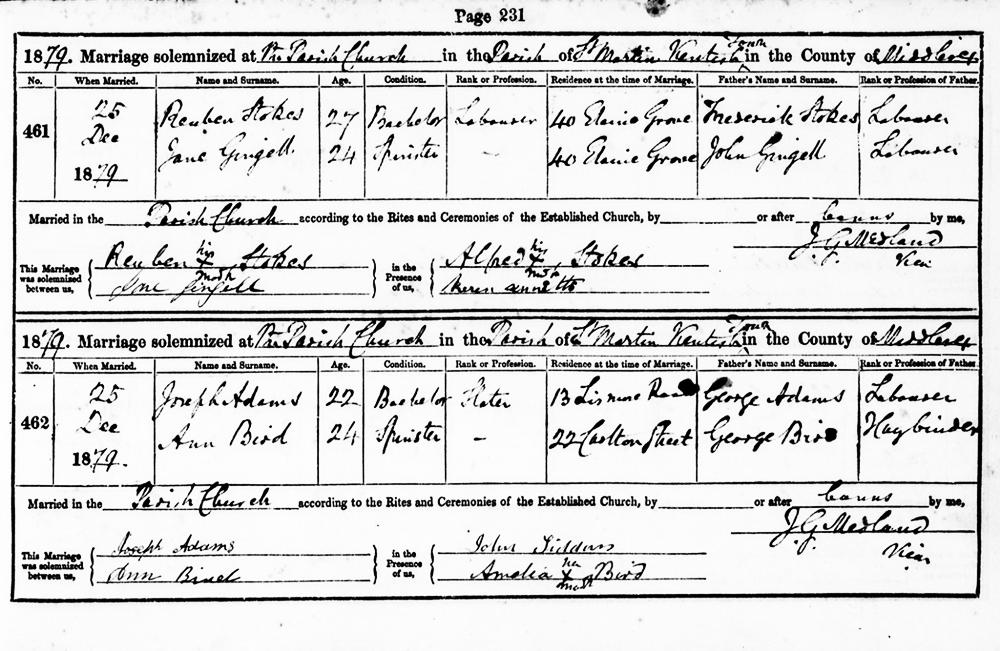 Page 231
1879. Marriage solemnized at The Parish Church in the Parish of St Martin Kentish Town in the County of Middlesex
No. When Married. Name and Surname. Age. Condition. Rank or Profession. Residence at the time of Marriage. Father's Name and Surname. Rank or Profession of Father.
461 25 Dec 1879 Reuben Stokes 27 Bachelor Labourer 40 Elaine Grove Frederick Stokes Labourer
Jane Gingell 24 Spinster - 40 Elaine Grove John Gingell Labourer
Married in the Parish Church according to the Rites and Ceremonies of the Established Church, by or after banns by me,
J. G. Medland
Vicar
This Marriage was solemnized between us, Reuben his X mark Stokes in the Presence of us, Alfred his X mark Stokes
Jane Gingell
1879. Marriage solemnized at The Parish Church in the Parish of St Martin Kentish Town in the County of Middlesex
No. When Married. Name and Surname. Age. Condition. Rank or Profession. Residence at the time of Marriage. Father's Name and Surname. Rank or Profession of Father.
462 25 Dec 1879. Joseph Adams 22 Bachelor Slater 13 Lismore Road George Adams Labourer
Ann Bird 24 Spinster - 22 Carlton Street George Bird Haybinder
Married in the Parish Church according to the Rites and Ceremonies of the Established Church, by or after banns by me,
J. G. Medland
Vicar
This Marriage was solemnized between us, Joseph Adams in the Presence of us, John Siddons
Ann Bird Amelia her X mark Bird